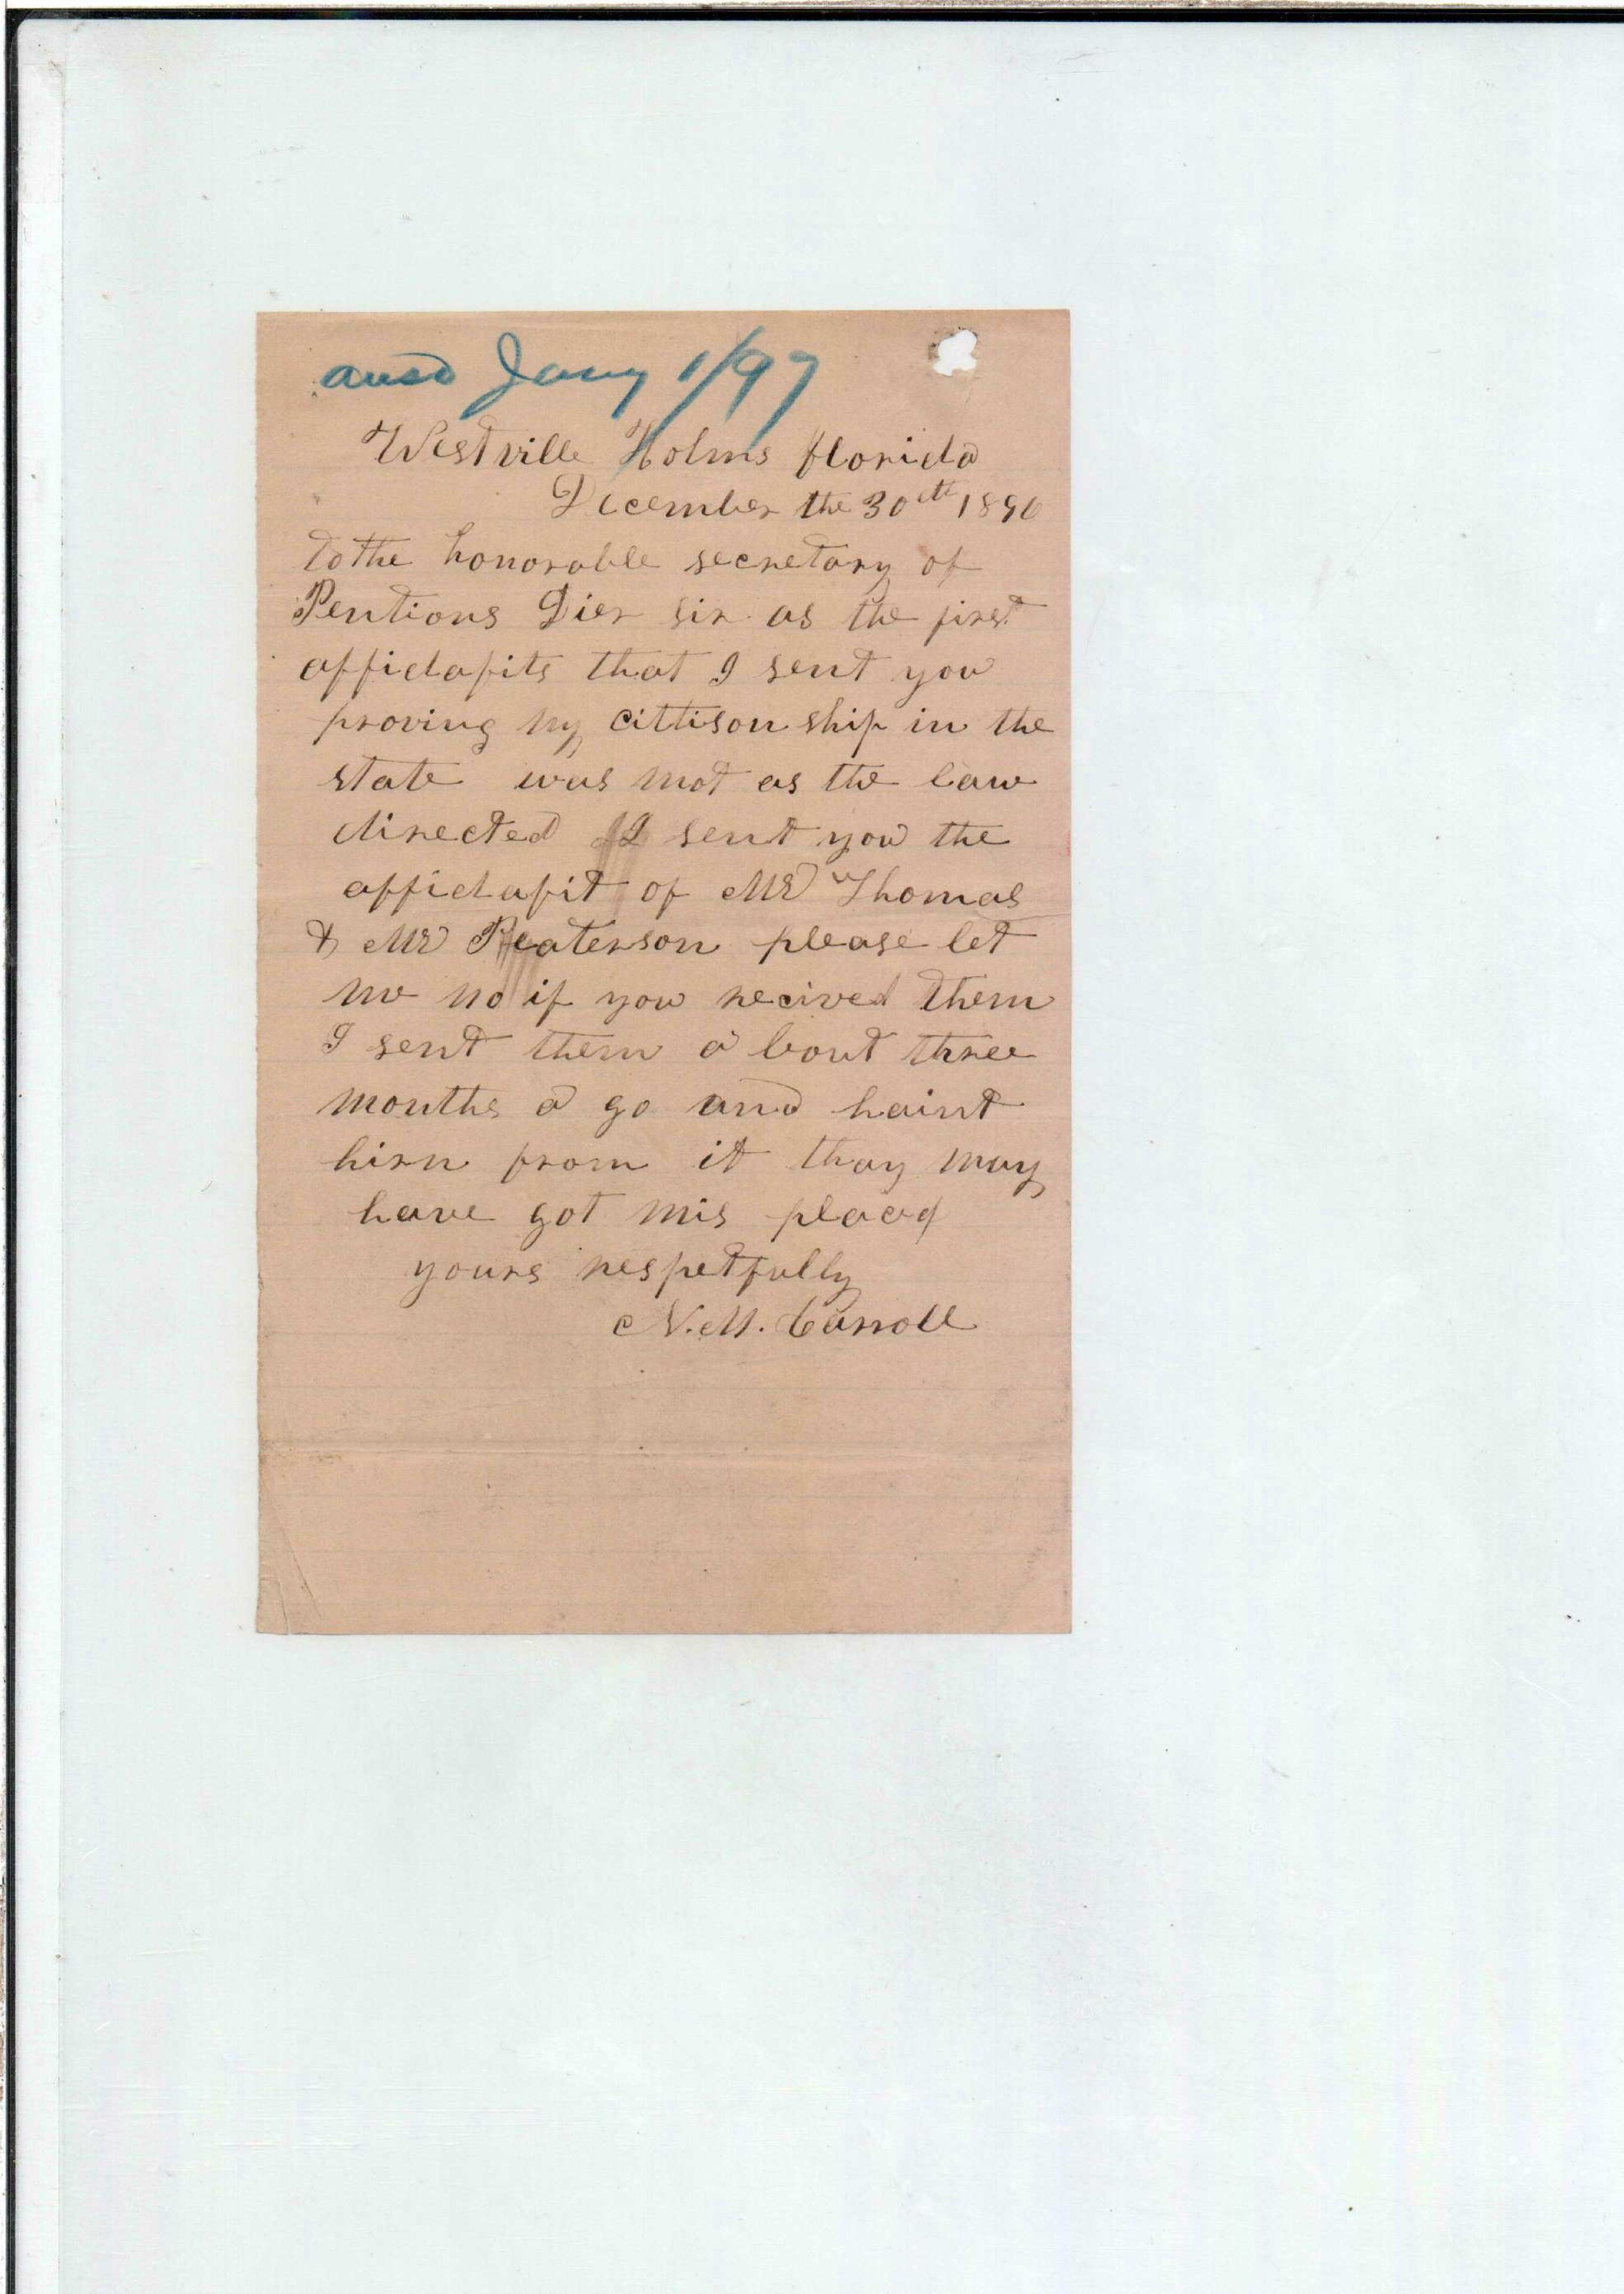 ansd Jany 1/97
Westville Holms florida
December the 30th 1896
to the honorable secretary of
Pentions Dier sir as the first
affidafits that I sent you
proving my cittison ship in the
state was not as the law
directed I sent you the
affidafit of Mr Thomas
& Mr Peaterson please let
me no if you recived them
I sent them a bout three
months a go and haint
hirn from it thay may
have got mis placed
yours respetfully
N. M. Carroll